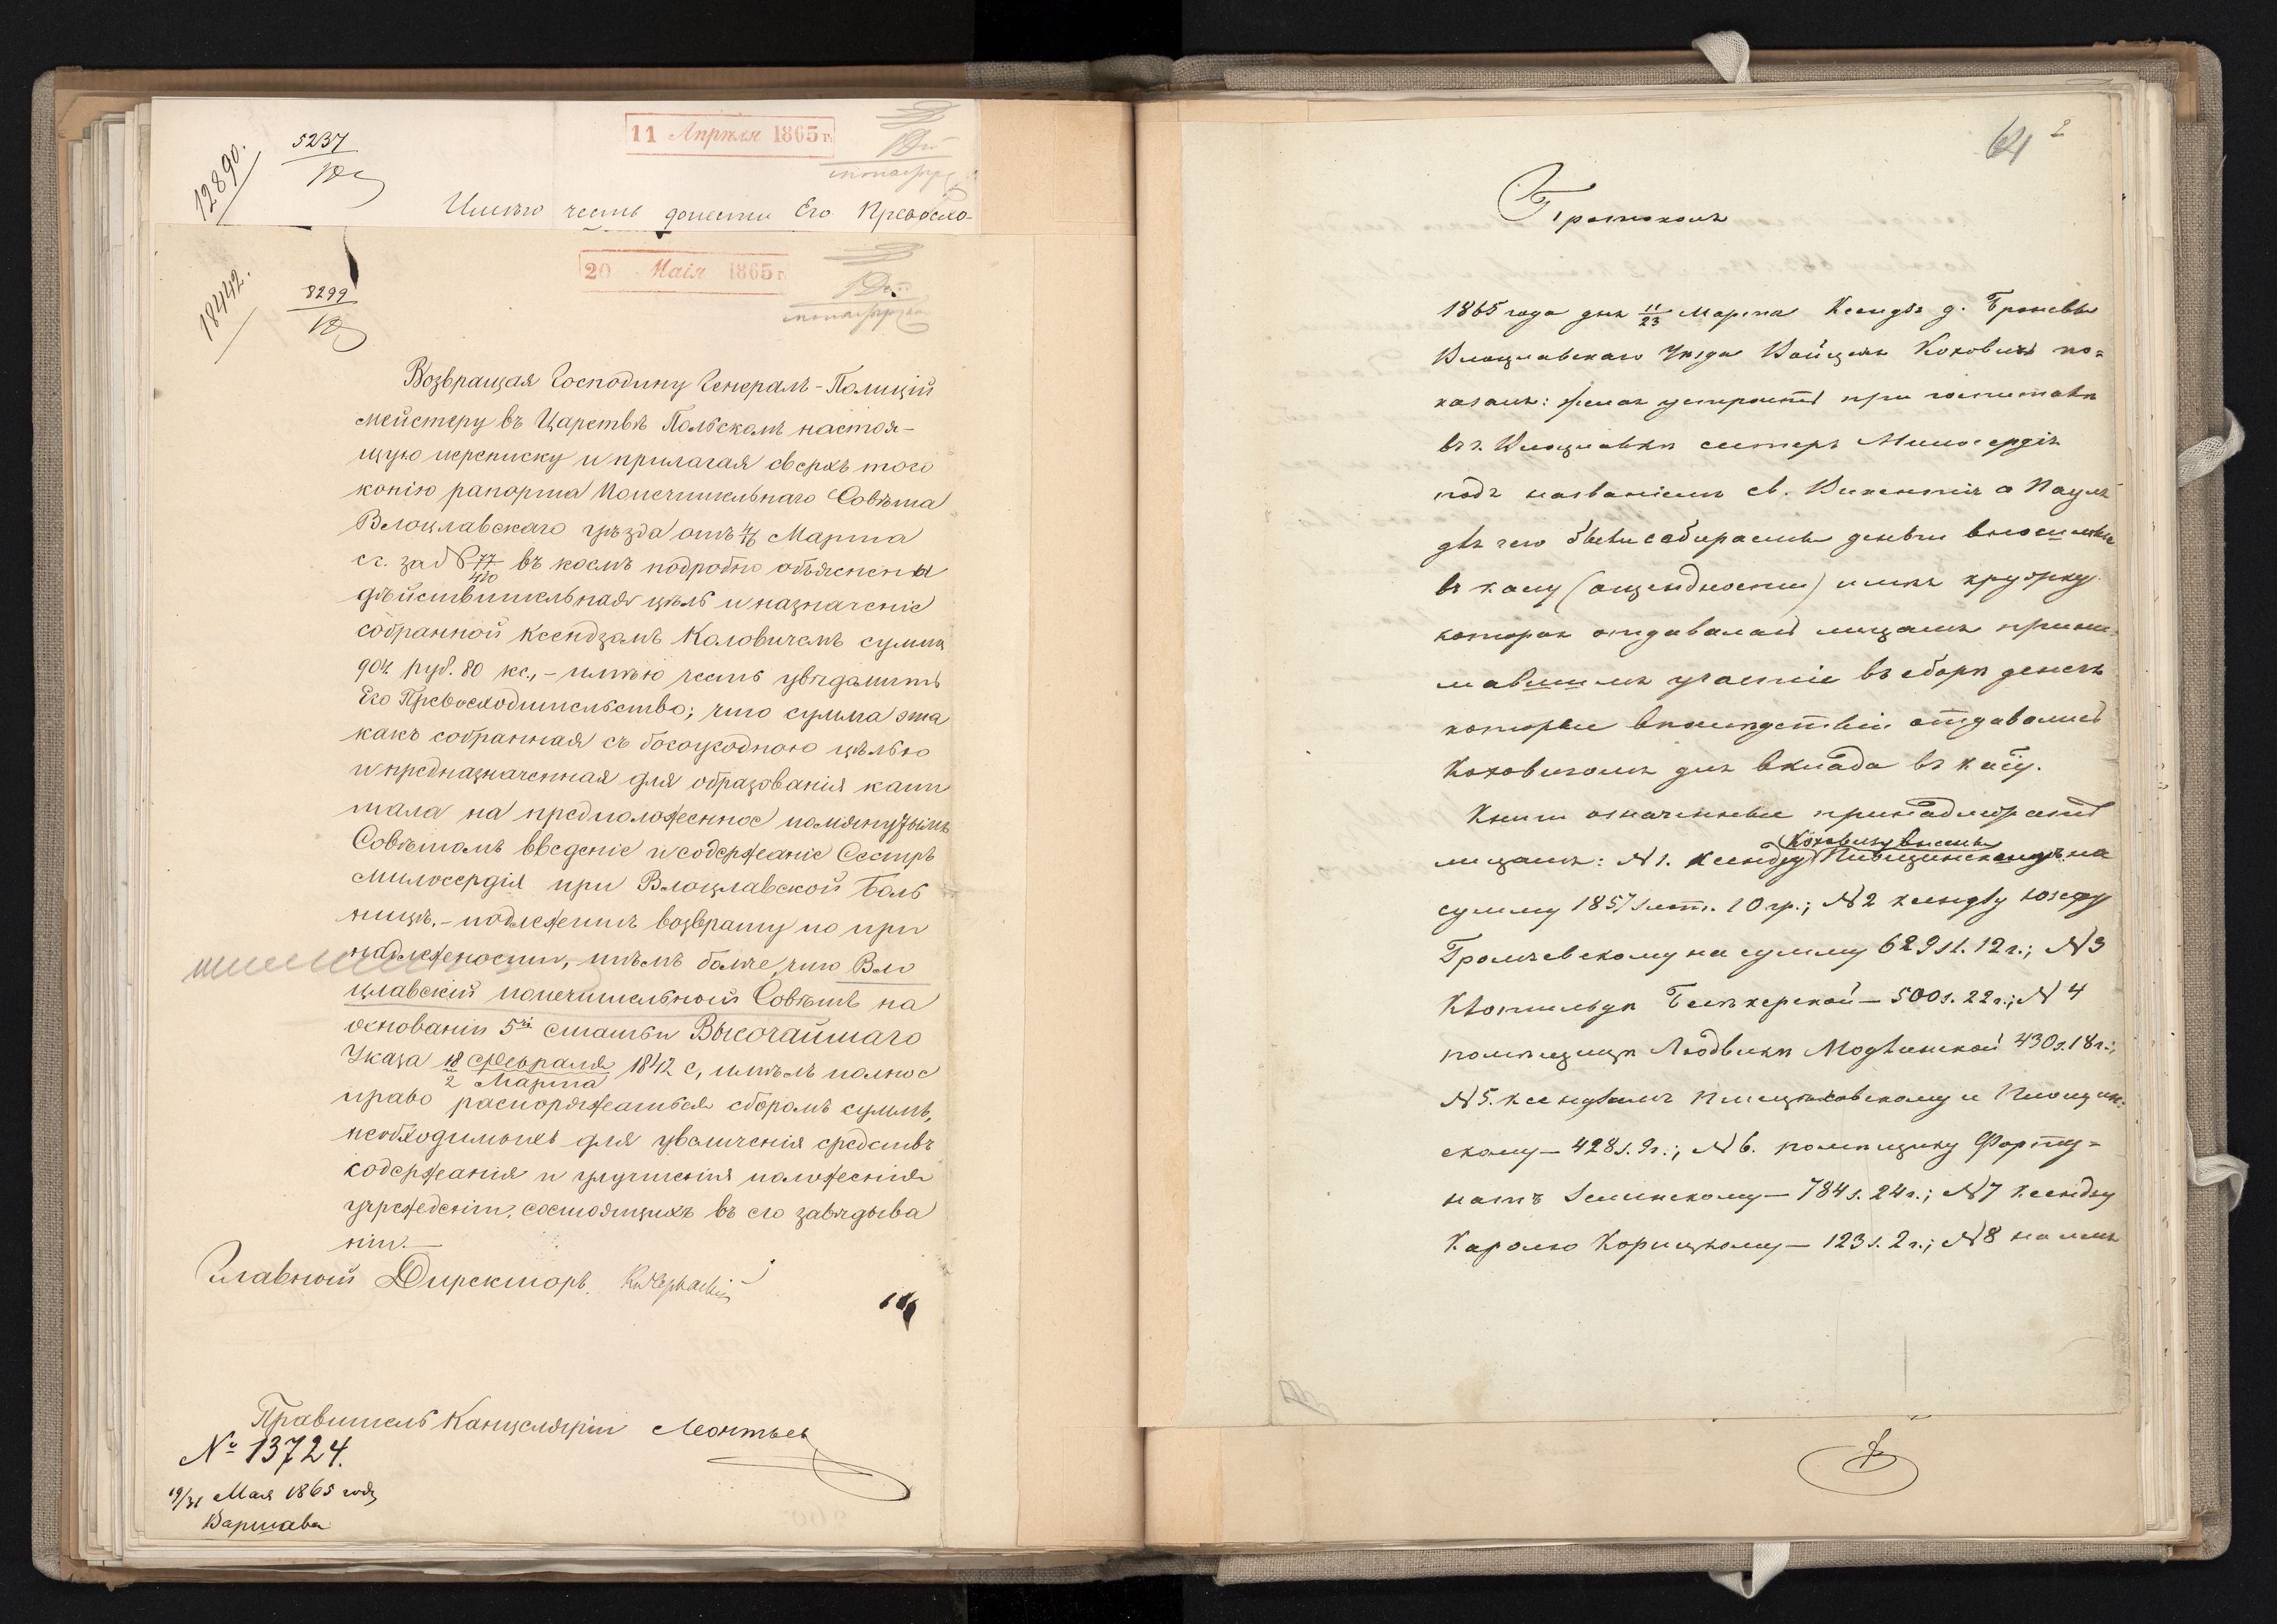 12890.
5237
11 Апрѣля 1865 г.
Имѣю честь донести Его Превосхо-
18442.
8299
20 Маія 1865 г.
Возвращая Господину Генералъ-Полиціи
мейстеру въ Царствѣ Польскомъ настоя-
щую переписку и прилагая сверхъ того
копію рапорта Попечительнаго Совѣта
Влоцлавскаго уѣзда отъ 4/16 Марта
с.г. за № 77/420 въ коемъ подробно объяснены
дѣйствительная цѣль и назначеніе
собранной Ксендзомъ Коловичемъ суммы
904 руб. 80 кс., - имѣю честь увѣдомить
Его Превосходительство; что сумма эта
какъ собранная съ богоугодною цѣлью
и предназначенная для образованія капи
тала на предположенное помянутымъ
Совѣтомъ введеніе и содержаніе Сестръ
Милосердія при Влоцлавской боль
ницѣ, - подлежитъ возврату по при
надлежности, тѣмъ болѣе, что Вло
цлавскій попечительный Совѣтъ на
основаніи 5й статьи Высочайшаго
Указа 18 Февраля / 2 Марта 1842 г, имѣлъ полное
право распоряжаться сборомъ суммъ,
необходимыхъ для увеличенія средствъ
содержанія и улучшенія положенія
учрежденій, состоящихъ въ его завѣдыва
ніи.—
Главный Директоръ.
Правитель Канцеляріи Леонтьев
№ 13724.
19/31 Мая 1865 года
Варшава
64 2
Протоколъ
1865 года дня 11/23 Марта Ксендзъ д.
Влоцлавскаго Уѣзда Войцехъ Коховичъ по=
казалъ: желая устроить при госпиталѣ
въ г. Влоцлавкѣ сестеръ Милосердія
подъ названіемъ св. Викентія а Пауля
для чего были собираемы деньги вносимые
въ касу (ощендности) имѣя кружку
которая отдавалась лицамъ прини-
мавшимъ участіе въ сборѣ денегъ
которые впослѣдствіи отдавались
Коховичомъ для вклада въ касу.
Книги означенные принадлежатъ
Коховичу
лицамъ: № 1. Ксендзу на
сумму 1857 злот. 10 гр.; № 2 ксендзу Юзефу
Громчевскому на сумму 629 з. 12 г.; № 3
Клотильдѣ — 500 з. 22 г.; № 4
помѣщицѣ Людвикѣ Модлинской 430 з. 18 г.;
№ 5. ксендзамъ и
скому — 428 з. 9 г.; № 6. помѣщику Форту=
нату Зелинскому — 784 з. 24 г.; № 7 Ксендзу
Каролю Корицкому — 123 з. 2 г.; № 8 на имя